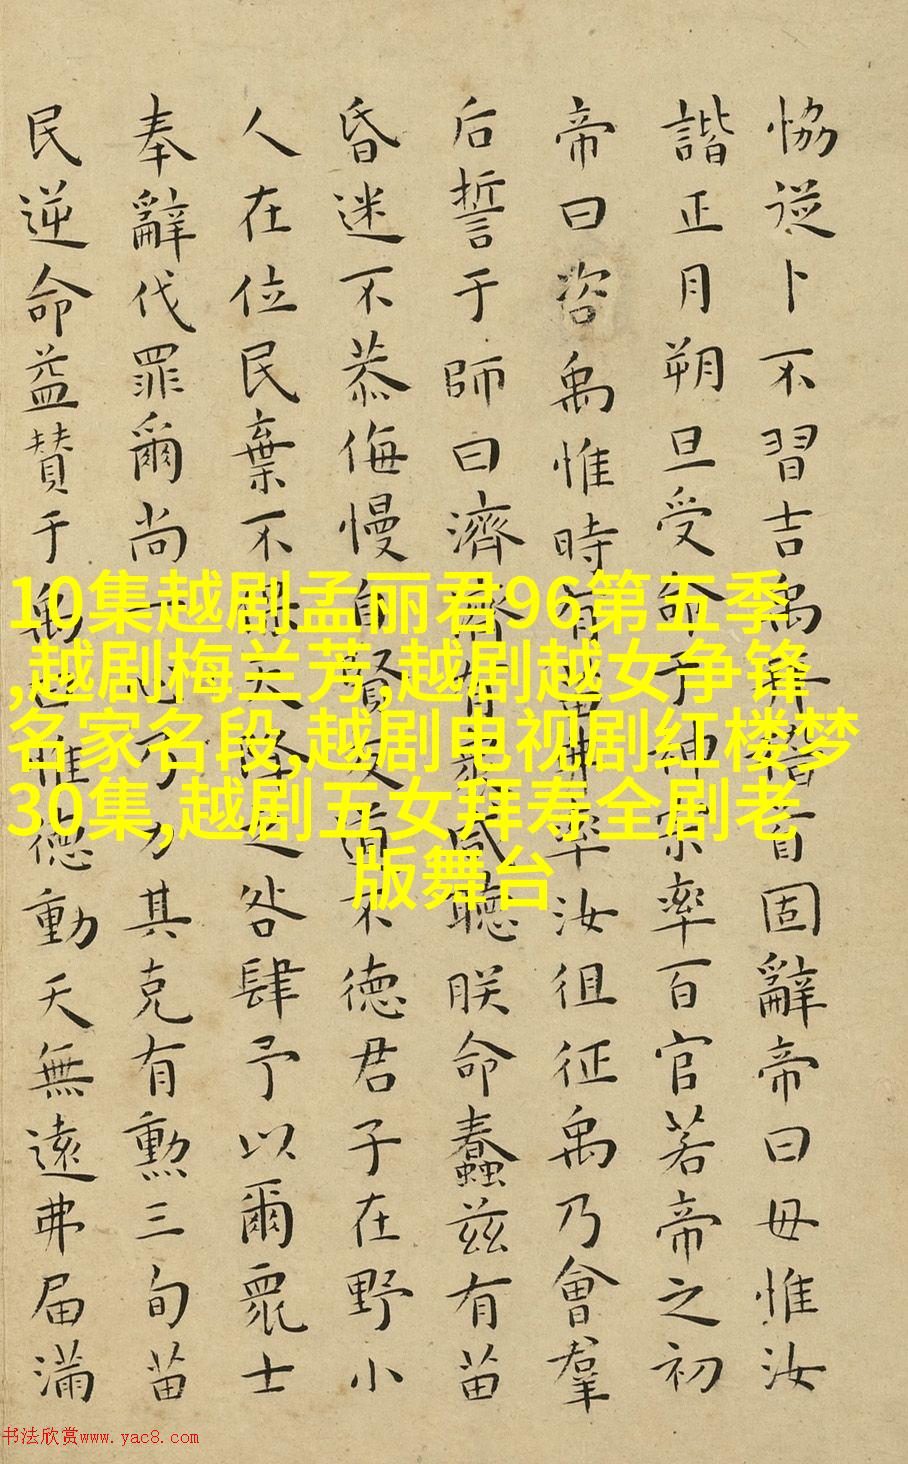 恊從卜不習吉禹拜稽首固辭帝曰毋惟汝
諧正月朔旦受命于神宗率百官若帝之初
帝曰咨禹惟時有苗弗率汝徂征禹乃會羣
后誓于師曰濟濟有衆咸聽朕命蠢兹有苗
昏迷不恭侮慢自賢反道不徳君子在野小
人在位民棄不保天降之咎肆予以爾眾士
奉辭伐罪爾尚一心乃力其克有勲三旬苗
民逆命益贊于禹曰惟徳動天無遠弗届滿
10集越剧孟丽君96第五季
,越剧梅兰芳,越剧越女争锋
名家名段,越剧电视剧红楼梦
30集,越剧五女拜寿全剧老
版舞台
书法欣赏www.yac8.com